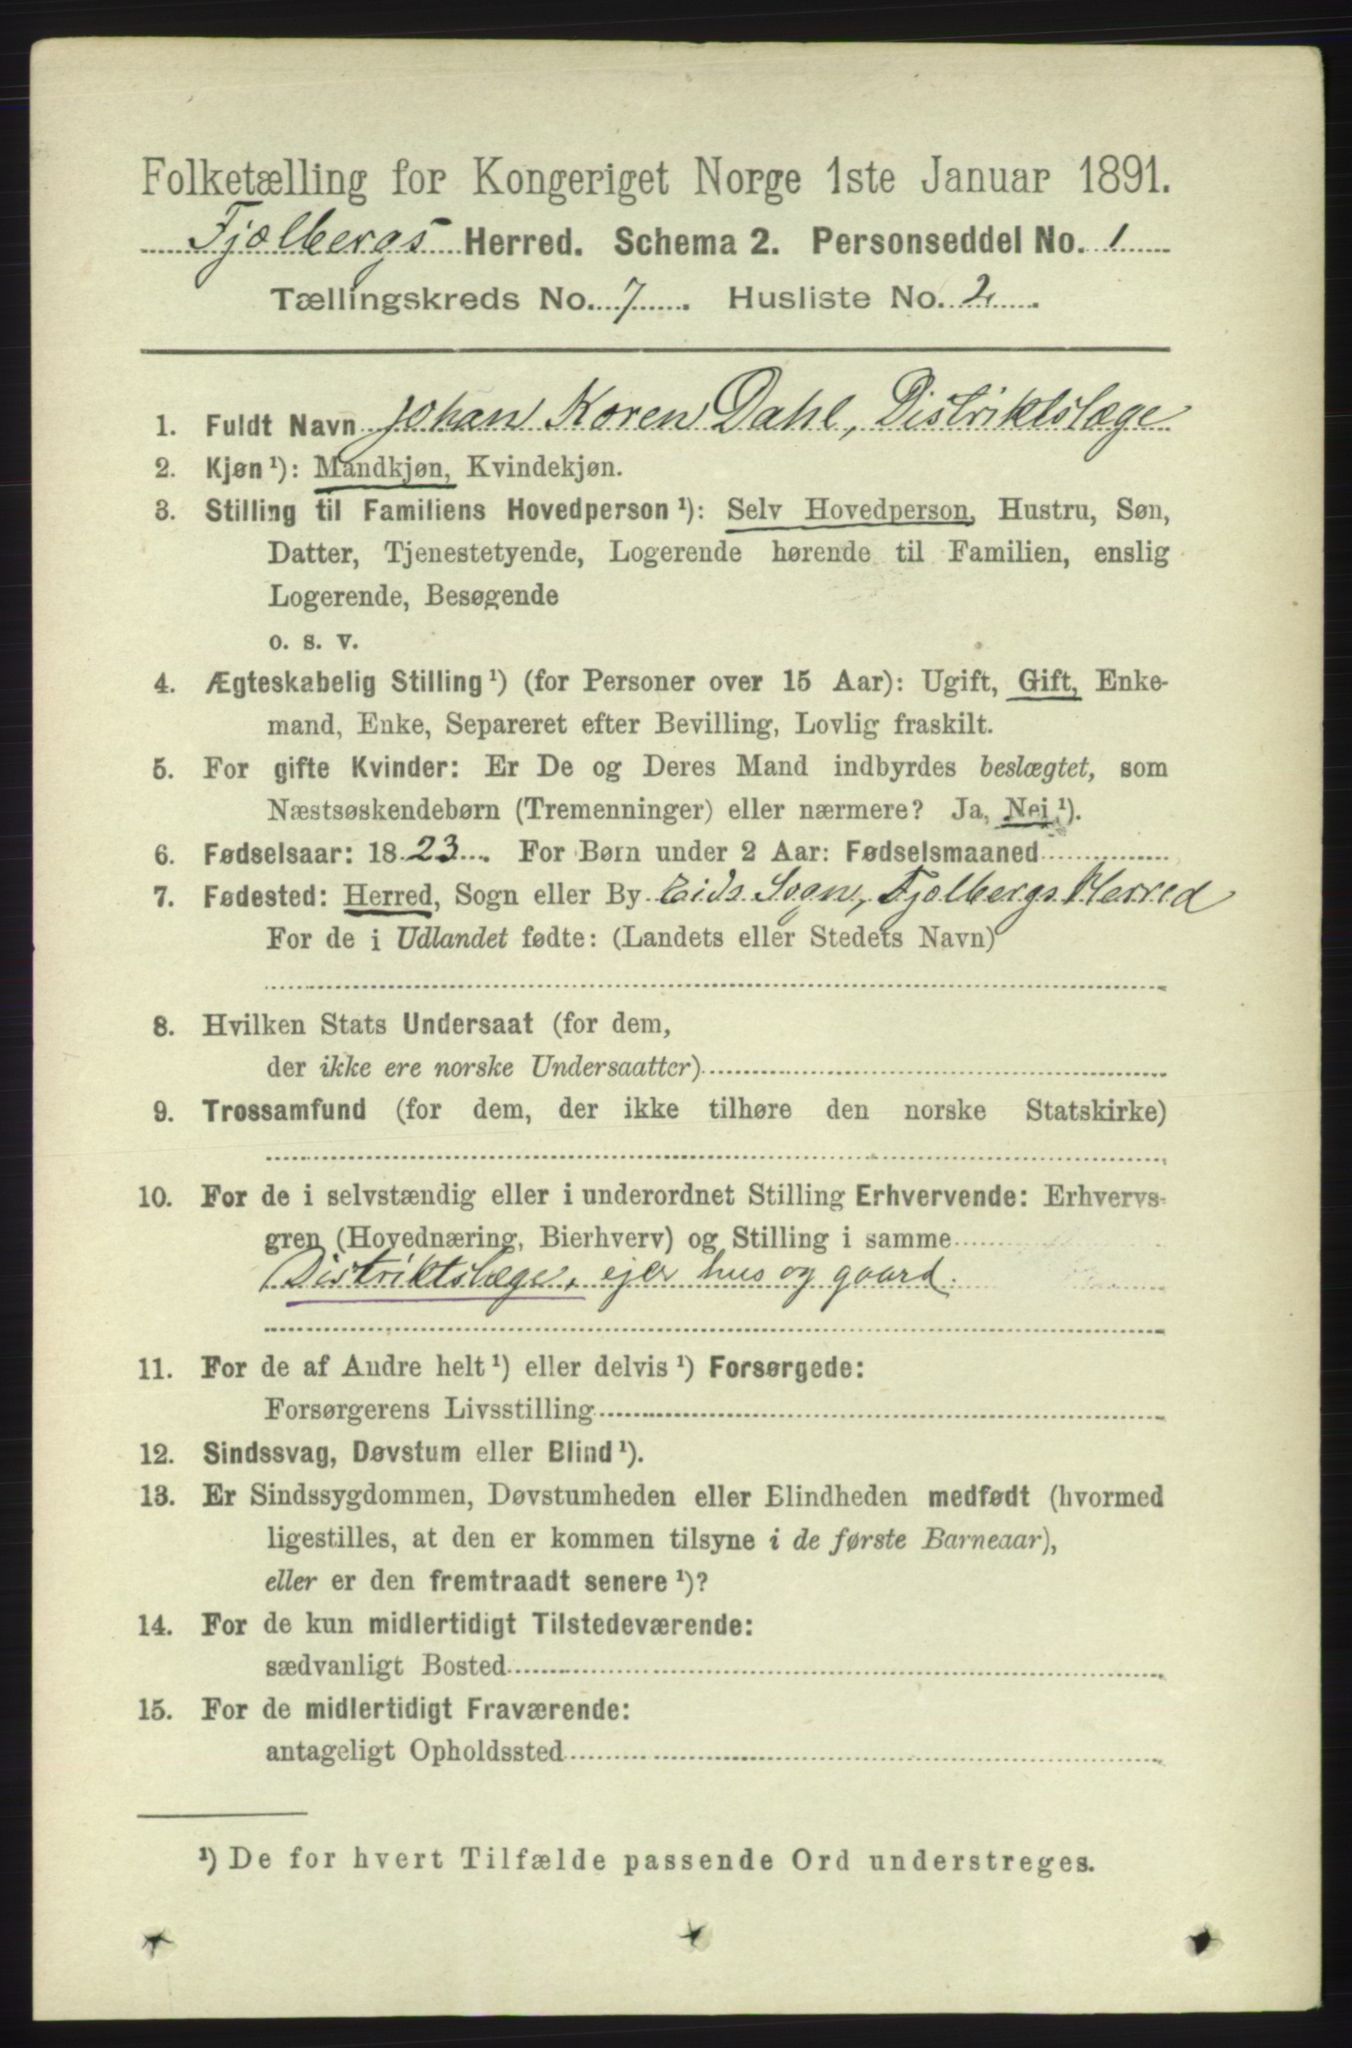 Folketælling for Kongeriget Norge 1ste Januar 1891.
Fjælbergs Herred. Schema 2. Personseddel No. 1
Tællingskreds No. 7. Husliste No. 2.
1. Fuldt Navn Johan Koren Dahl, Distriktslæge
2. Kjøn ¹): Mandkjøn, Kvindekjøn.
3. Stilling til Familiens Hovedperson ¹): Selv Hovedperson, Hustru, Søn,
Datter, Tjenestetyende, Logerende hørende til Familien, enslig
Logerende, Besøgende
o. s. v.
4. Ægteskabelig Stilling ¹) (for Personer over 15 Aar): Ugift, Gift, Enke-
mand, Enke, Separeret efter Bevilling, Lovlig fraskilt.
5. For gifte Kvinder: Er De og Deres Mand indbyrdes beslægtet, som
Næstsøskendebørn (Tremenninger) eller nærmere? Ja, Nei ¹).
6. Fødselsaar: 1823. For Børn under 2 Aar: Fødselsmaaned
7. Fødested: Herred, Sogn eller By Eids Sogn, Fjælbergs Herred
For de i Udlandet fødte: (Landets eller Stedets Navn)
8. Hvilken Stats Undersaat (for dem,
der ikke ere norske Undersaatter)
9. Trossamfund (for dem, der ikke tilhøre den norske Statskirke)
10. For de i selvstændig eller i underordnet Stilling Erhvervende: Erhvervs-
gren (Hovednæring, Bierhverv) og Stilling i samme
Distriktslæge, ejer hus og gaard.
11. For de af Andre helt ¹) eller delvis ¹) Forsørgede:
Forsørgerens Livsstilling
12. Sindssvag, Døvstum eller Blind ¹).
13. Er Sindssygdommen, Døvstumheden eller Blindheden medfødt (hvormed
ligestilles, at den er kommen tilsyne i de første Barneaar),
eller er den fremtraadt senere ¹)?
14. For de kun midlertidigt Tilstedeværende:
sædvanligt Bosted
15. For de midlertidigt Fraværende:
antageligt Opholdssted
¹) De for hvert Tilfælde passende Ord understreges.